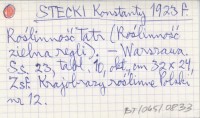 STECKI Konstanty 1923 f.
Roślinność Tatr (Roślinność
zielna regli). – Warszawa
Ss. 23, tabl. 10, okł., cm 32 x 24,
Zst. Krajobrazy roślinne Polski
nr 12.